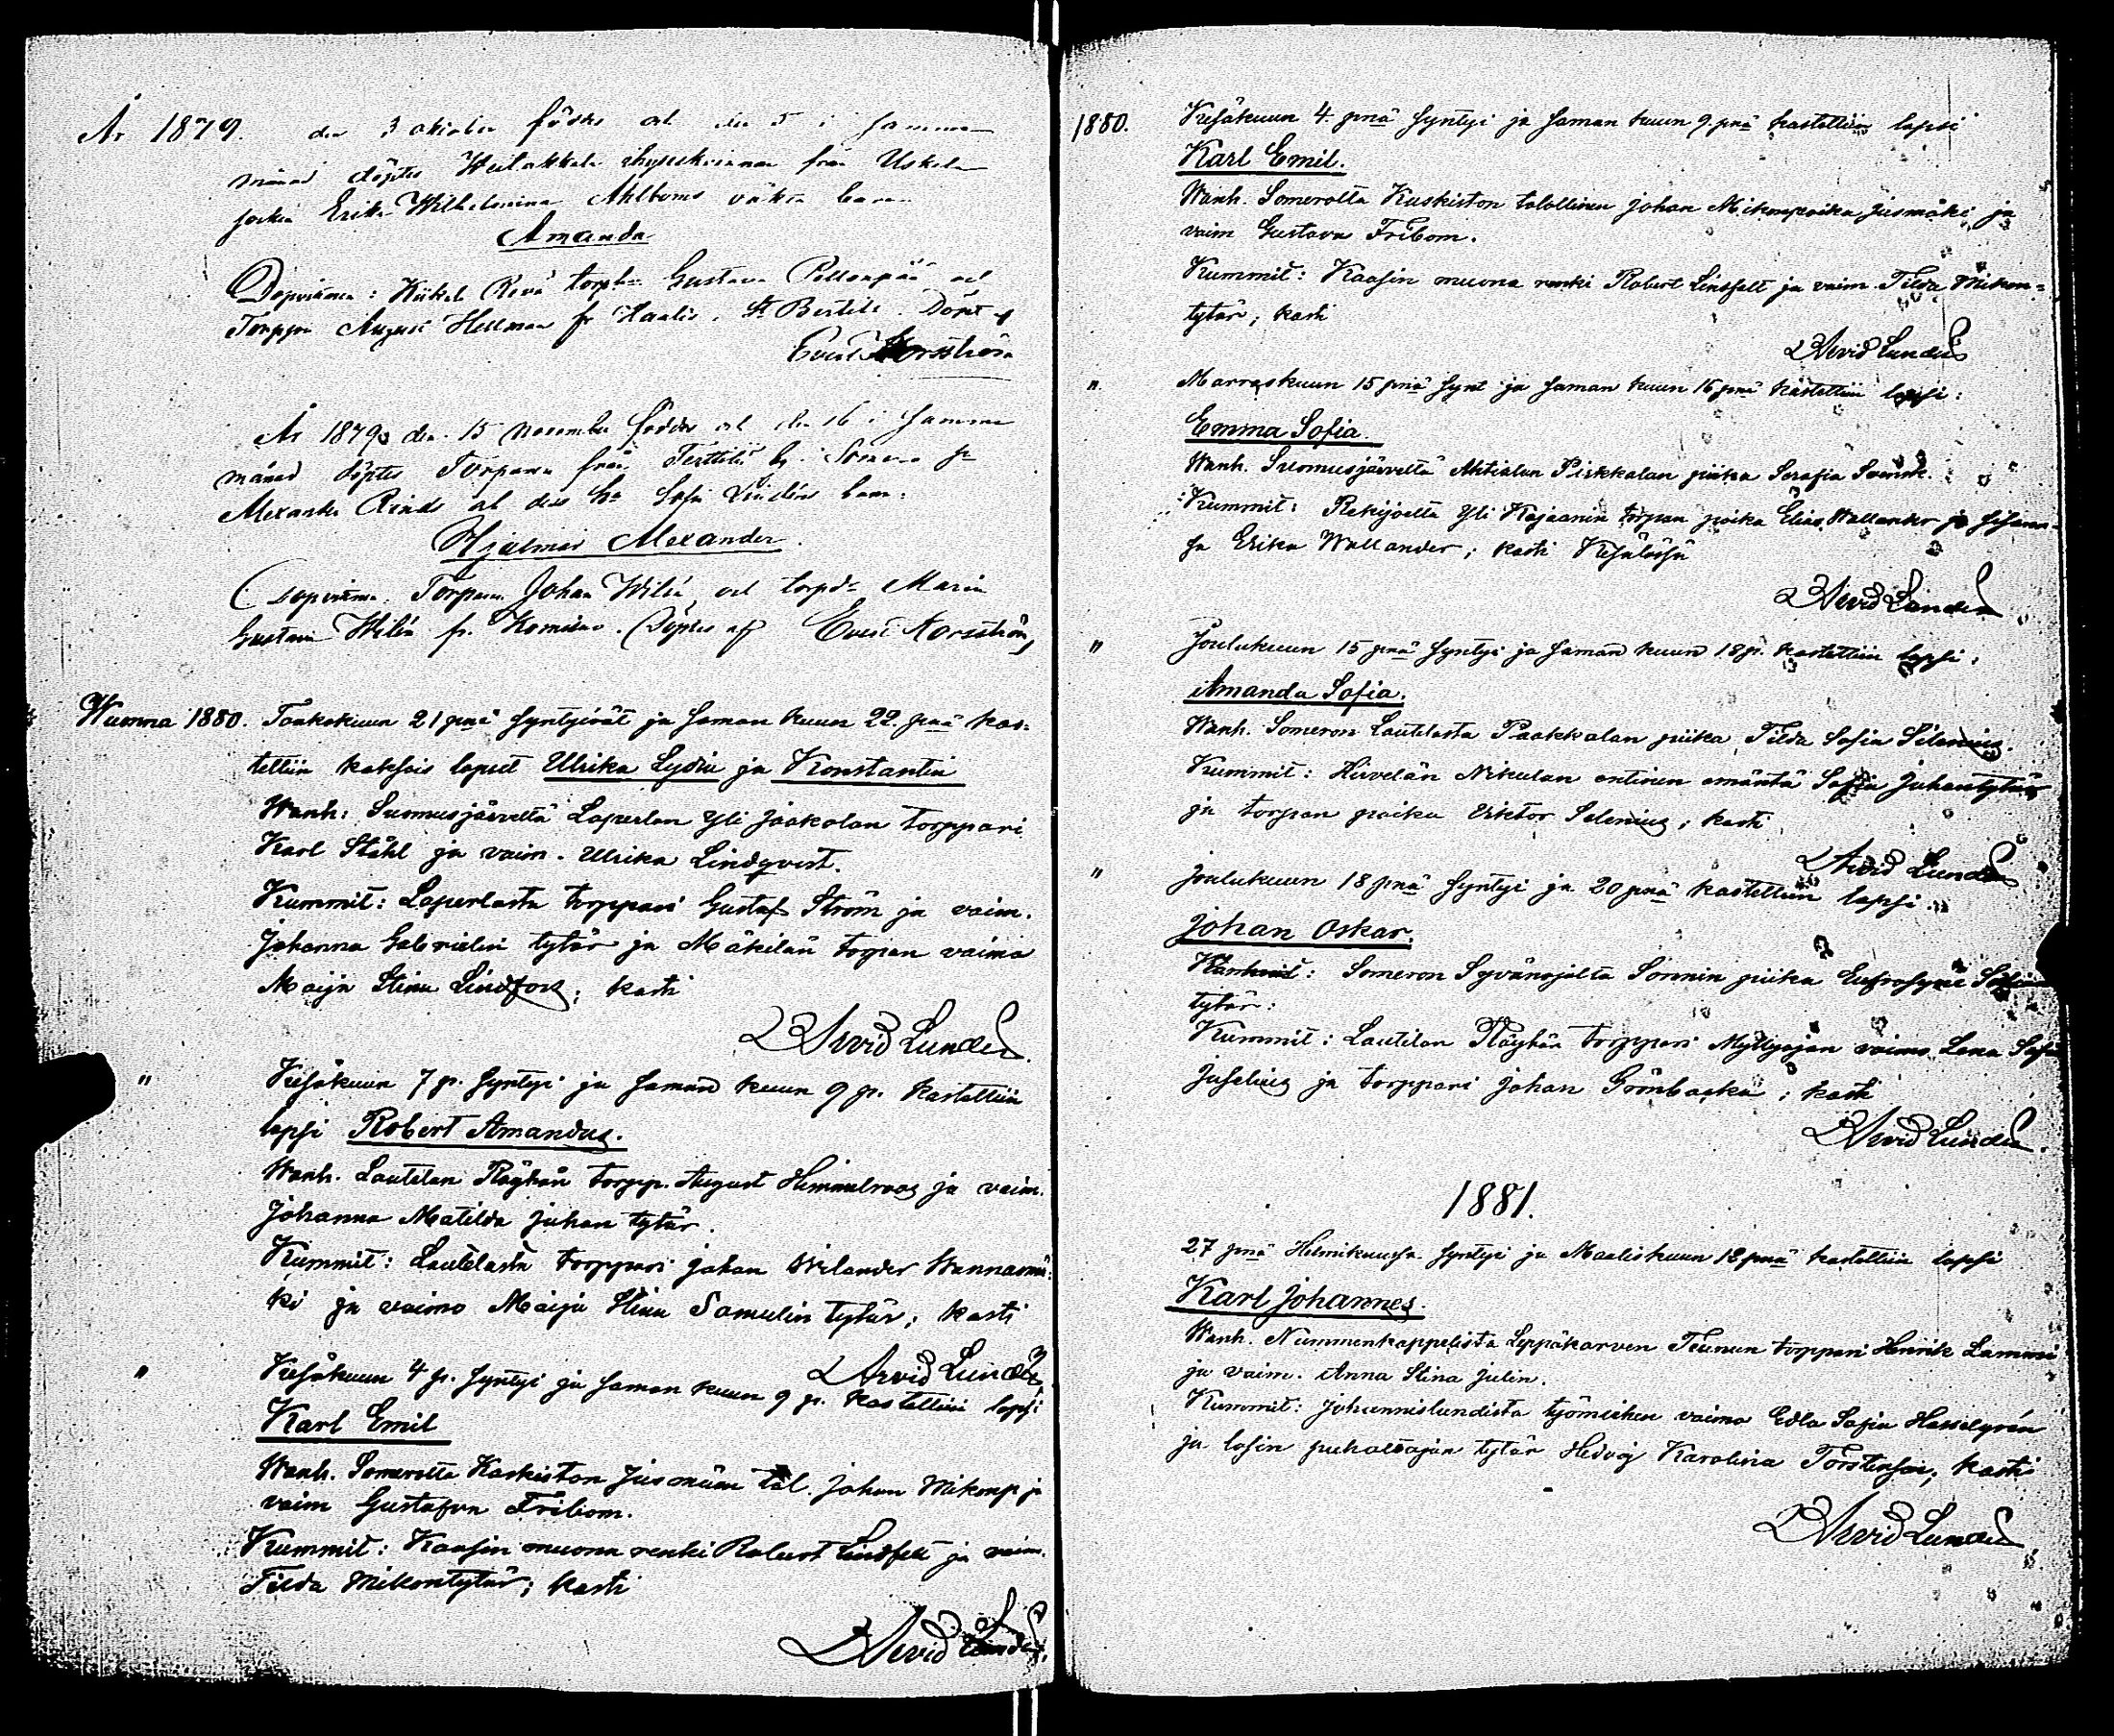 År 1879. den 3 oktober föddes och den 5 i samma
månad döptes från Uskela
socken Erika Wilhelmina Ahlboms oäkta barn
Amanda
Dopvittnen: torp. Gustava och
Torppr August Hellman fr Haalis, St Bertils. Döpt af
Evert Norsström
År 1879 den 15 november föddes och den 16 i samma
månad döptes Torparen från Terttilä by i Somero sn
Alexander Rind och dess h. Sofia Lindéns barn:
Hjalmar Alexander.
Dopvittnen: Torparen Johan Wilén och torpd. Maria
Gustava Wilén fr. Döptes af Evert Norsström,
Wuonna 1880. Toukokuun 21 pnä syntyivät ja saman kuun 22. pnä kas-
tettiin kaksois lapset Ulrika Lydia ja Konstantin
Wanh: Suomusjärveltä Laperlan Yli Jaakolan torppari
Karl Ståhl ja vaim. Ulrika Lindqvist.
Kummit: Laperlasta torppari Gustaf Ström ja vaim.
Johanna Gabrielin tytär ja Mäkilän torpan vaimo
Maija Stina Lindfors; kasti
Arvid Lundén.
" Kesäkuun 7 p. syntyi ja saman kuun 9 p. kastettiin
lapsi Robert Amandus.
Wanh. Lautelan Röyhän torpp. August Himmelroos ja vaim.
Johanna Matilda Juhan tytär.
Kummit: Lautelasta torppari Johan Wilander Wannasmä-
ki ja vaimo Maija Stina Samulin tytär; kasti
Arvid Lundén
" Kesäkuun 4 p. syntyi ja saman kuun 9 p. kastettiin lapsi
Karl Emil
Wanh. Somerolta Kaskiston Jüsmäen tal. Johan Mikonp ja
vaim Gustafva Fribom.
Kummit: Kaasin muona renki Robert Lindfelt ja vaim.
Tilda Mikontytär; kasti
Arvid Lundén.
1880. Kesäkuun 4. pnä syntyi ja saman kuun 9. pnä kastettiin lapsi
Karl Emil.
Wanh. Somerolta Kuskiston talollinen Johan Mikonpoika Jüsmäki ja
vaim Gustava Fribom.
Kummit: Kaasin muona renki Robert Lindfelt ja vaim Tilda Mikon-
tytär; kasti
Arvid Lundén
" Marraskuun 15 pnä synt ja saman kuun 16 pnä kastettiin lapsi:
Emma Sofia.
Wanh. Suomusjärveltä Ahtialan Pirkkalan piika Serafia
Kummit: Rekijoelta Yli Kajaanin torpan poika Elias Wallander ja sisaren-
sa Erika Wallander; kasti
Arvid Lundén
" Joulukuun 15 pnä syntyi ja saman kuun 18 p. kastettiin lapsi:
Amanda Sofia.
Wanh. Someron Lautelasta Paakkalan piika Tilda Sofia Silenius.
Kummit: Hirvelän Nikulan entinen emäntä Sofia Juhantytär
ja torpan poika Viktor Selenius; kasti
Arvid Lundén
" Joulukuun 18 pnä syntyi ja 20 pnä kastettiin lapsi.
Johan Oskar.
Wanh: Someron Syvänojalta Sonnin piika Eufrosyne
tytär:
Kummit: Lautelan Röyhän torppari Myllyojan vaimo Lena Sofia
Juselius ja torppari Johan Grönbacka; kasti
Arvid Lundén.
1881.
27 pnä Helmikuussa syntyi ja Maaliskuun 12 pnä kastettiin lapsi
Karl Johannes.
Wanh. Nummenkappelista Leppäkorven Teunun torppari Henrik Lammi
ja vaim. Anna Stina Julin.
Kummit: Johannislundista työmiehen vaimo Edla Sofia Hasselgrén
ja lasin puhaltajan tytär Hedvig Karolina Torstensen; kasti
Arvid Lundén